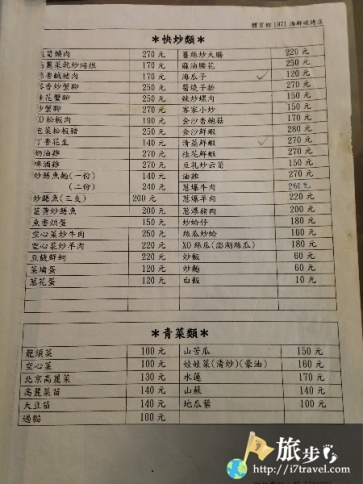 1971 海鮮碳烤店
＊快炒類＊
螺肉 270 元 薑絲炒大腸 220 元
高麗菜乾炒 170 元 麻油腰花 250 元
香鹹豬肉 170 元 海瓜子 120 元
香炒蟹腳 250 元 醬燒子排 270 元
花蟹腳 250 元 妹炒螺肉 150 元
炒蟹腳 250 元 客家小炒 150 元
XO 松板肉 190 元 金沙杏鮑菇 170 元
泡菜松板豬 250 元 金沙鮮蝦 280 元
丁香花生 140 元 清蒸鮮蝦 270 元
奶油雞 270 元 桂花鮮蝦 270 元
啤酒雞 270 元 豆乳炒 150 元
炒鱔魚麵(一份) 140 元 油雞 270 元
(二份) 240 元 蔥爆牛肉 260 元
炒鱔魚(三支) 200 元 蔥爆羊肉 220 元
韭黃炒鱔魚 200 元 蔥爆豬肉 200 元
魚香烘蛋 150 元 炒蛤仔 180 元
空心菜炒牛肉 250 元 絲瓜炒蛤 160 元
空心菜炒羊肉 220 元 XO 絲瓜(澎湖絲瓜) 180 元
豆豉鮮蚵 220 元 炒飯 60 元
菜埔蛋 120 元 炒麵 60 元
蔥花蛋 120 元 白飯 10 元
＊青菜類＊
龍鬚菜 100 元 山苦瓜 150 元
空心菜 100 元 娃娃菜(清炒)(蠔油) 160 元
北京高麗菜 130 元 水蓮 170 元
高麗菜苗 140 元 山蘇 140 元
大豆苗 140 元 地瓜葉 100 元
過貓 100 元
旅步
http://i7travel.com